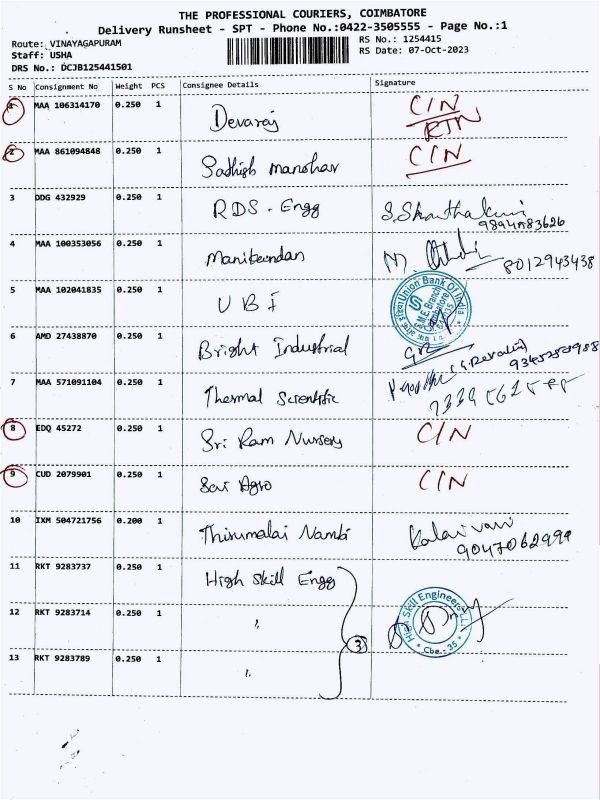 THE PROFESSIONAL COURIERS, COIMBATORE
Delivery Runsheet - SPT - Phone No.:0422-3505555 - Page No.:1
Route: VINAYAGAPURAM
RS No.: 1254415
Staff: USHA
RS Date: 07-Oct-2023
DRS No.: DCJB125441501
S No Consignment No Weight PCS Consignee Details Signature
1 MAA 106314170 0.250 1 Devaraj C/N
RTN
2 MAA 861094848 0.250 1 Sadhish manohar C/N
3 DDG 432929 0.250 1 RDS. Engg
4 MAA 100353056 0.250 1 Manikandan 8012943438
5 MAA 102041835 0.250 1 U B I Union Bank Of India
6 AMD 27438870 0.250 1 Bright Industrial
7 MAA 571091104 0.250 1 Thermal Scientific
8 EDQ 45272 0.250 1 Sri Ram Nursery C/N
9 CUD 2079901 0.250 1 Sai Agro C/N
10 IXM 504721756 0.200 1 Thirumalai Nambi Kalaivani
9047062999
11 RKT 9283737 0.250 1 High Skill Engg
12 RKT 9283714 0.250 1 "
3
13 RKT 9283789 0.250 1 "